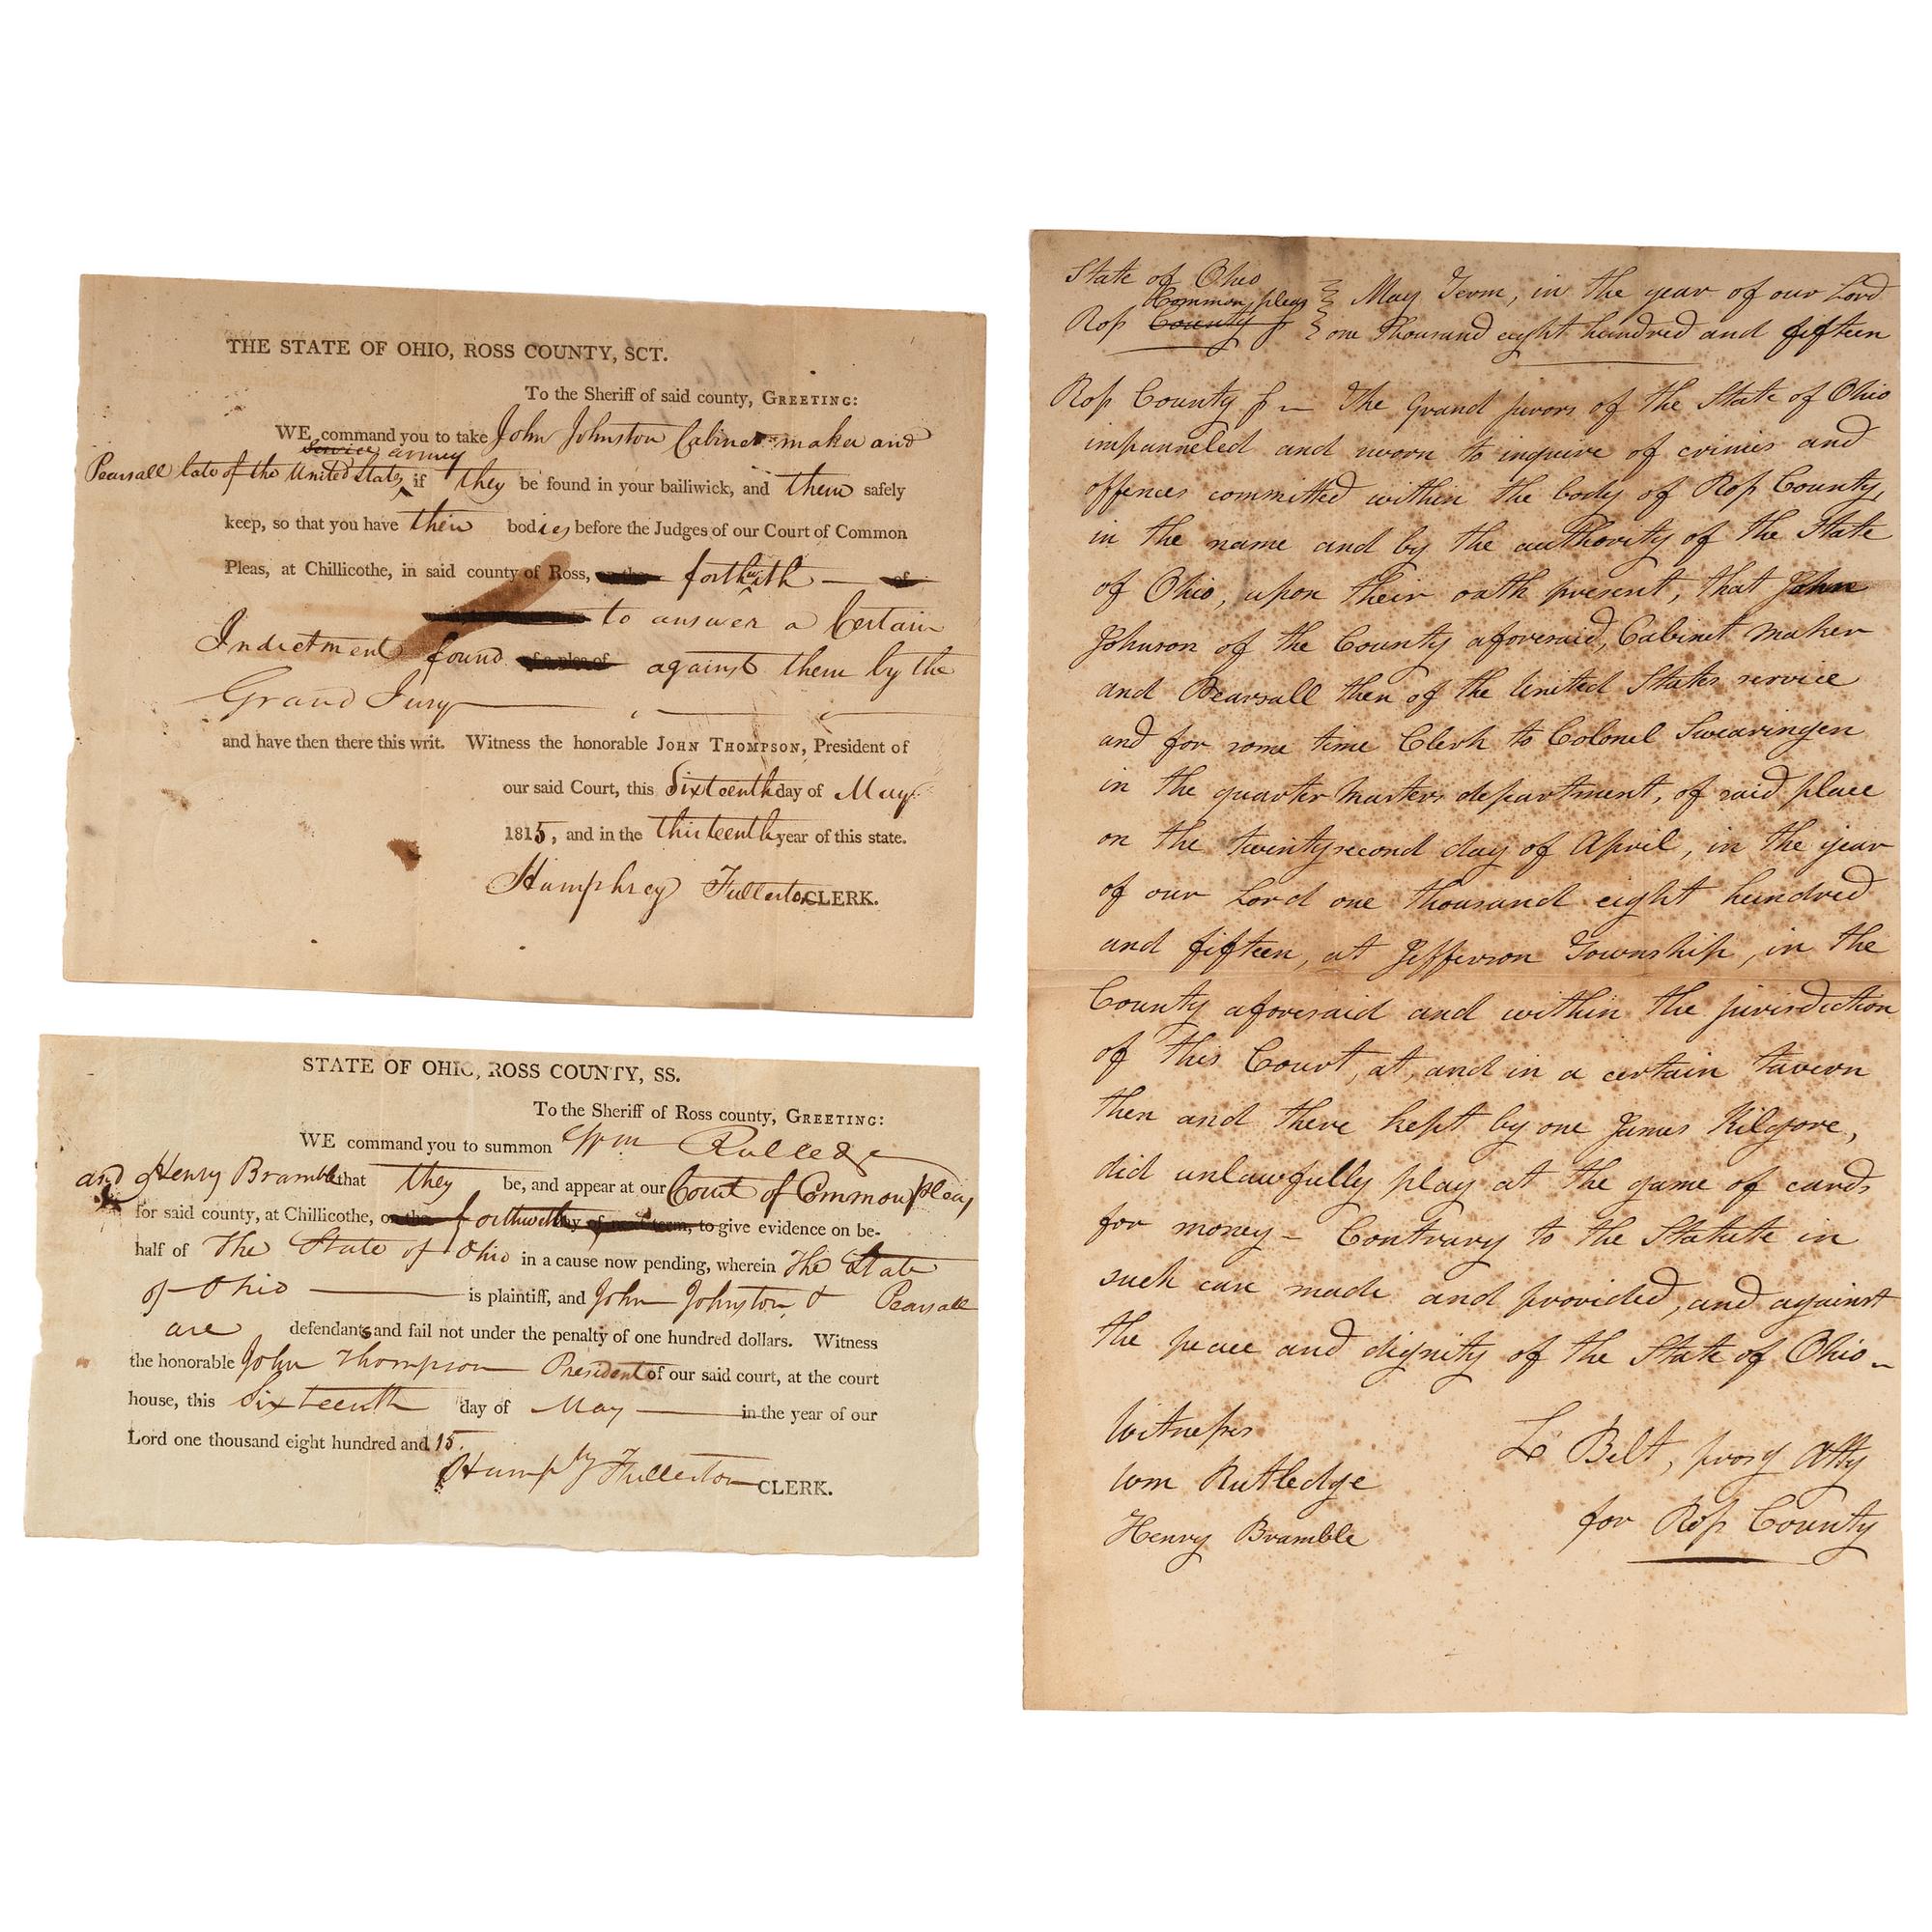 THE STATE OF OHIO, ROSS COUNTY, SCT.
To the Sheriff of said county, GREETING:
WE command you to take John Johnston Cabinet maker and
service army
Pearsall late of the United States if they be found in your bailiwick, and them safely
keep, so that you have their bodies before the Judges of our Court of Common
Pleas, at Chillicothe, in said county of Ross, on the forthwith — of
to answer a Certain
Indictment found of a plea of against them by the
Grand Jury
and have then there this writ. Witness the honorable JOHN THOMPSON, President of
our said Court, this Sixteenth day of May
1815, and in the thirteenth year of this state.
Humphrey Fullerton CLERK.
STATE OF OHIO, ROSS COUNTY, SS.
To the Sheriff of Ross county, GREETING:
WE command you to summon Wm Rutledge
and Henry Bramble that they be, and appear at our Court of Common pleas
for said county, at Chillicothe, on the forthwith day of next term, to give evidence on be-
half of The State of Ohio in a cause now pending, wherein The State
of Ohio — is plaintiff, and John Johnston & Pearsall
are defendants and fail not under the penalty of one hundred dollars. Witness
the honorable John Thompson President of our said court, at the court
house, this Sixteenth day of May — in the year of our
Lord one thousand eight hundred and 15.
Humphy Fullerton CLERK.
State of Ohio
Common pleas } May Term, in the year of our Lord
Ross County ss } one thousand eight hundred and fifteen
Ross County ss — The Grand jurors of the State of Ohio
impanneled and sworn to inquire of crimes and
offences committed within the body of Ross County,
in the name and by the authority of the State
of Ohio, upon their oath present, that John
Johnson of the County aforesaid, Cabinet maker
and Pearsall then of the United States service
and for some time Clerk to Colonel Swearingen
in the quarter masters department, of said place
on the twenty second day of April, in the year
of our Lord one thousand eight hundred
and fifteen, at Jefferson Township, in the
County aforesaid and within the jurisdiction
of this Court, at, and in a certain tavern
then and there kept by one James Kilgore,
did unlawfully play at the game of cards
for money — Contrary to the Statute in
such case made and provided, and against
the peace and dignity of the State of Ohio —
Witnesses
Wm Rutledge
Henry Bramble
L. Belt, prosg Atty
for Ross County